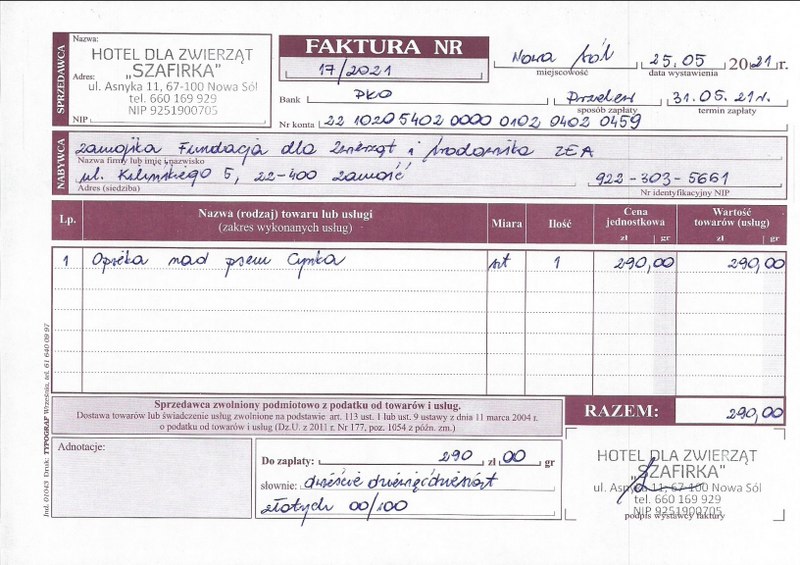 SPRZEDAWCA
Nazwa:
HOTEL DLA ZWIERZĄT
„SZAFIRKA”
Adres:
ul. Asnyka 11, 67-100 Nowa Sól
tel. 660 169 929
NIP 9251900705
NIP
FAKTURA NR
17/2021
Nowa Sól
miejscowość
25.05 2021 r.
data wystawienia
Bank PKO
Przelew
sposób zapłaty
31.05.21r.
termin zapłaty
Nr konta 22 1020 5402 0000 0102 0402 0459
NABYWCA
Zamojska Fundacja dla Zwierząt i Środowiska ZEA
Nazwa firmy lub imię i nazwisko
ul. Kilińskiego 5, 22-400 Zamość
Adres (siedziba)
922-303-5661
Nr identyfikacyjny NIP
Lp.
Nazwa (rodzaj) towaru lub usługi
(zakres wykonanych usług)
Miara
Ilość
Cena
jednostkowa
zł gr
Wartość
towarów (usług)
zł gr
1 Opieka nad psem Cymka szt 1 290,00 290,00
Sprzedawca zwolniony podmiotowo z podatku od towarów i usług.
Dostawa towarów lub świadczenie usług zwolnione na podstawie art. 113 ust. 1 lub ust. 9 ustawy z dnia 11 marca 2004 r.
o podatku od towarów i usług (Dz.U. z 2011 r. Nr 177, poz. 1054 z późn. zm.)
RAZEM: 290,00
Adnotacje:
Do zapłaty: 290 zł 00 gr
słownie: dwieście dziewięćdziesiąt
złotych 00/100
HOTEL DLA ZWIERZĄT
„SZAFIRKA”
ul. Asnyka 11, 67-100 Nowa Sól
tel. 660 169 929
NIP 9251900705
podpis wystawcy faktury
Ind. 01043 Druk: TYPOGRAF Września, tel. 61 640 09 97